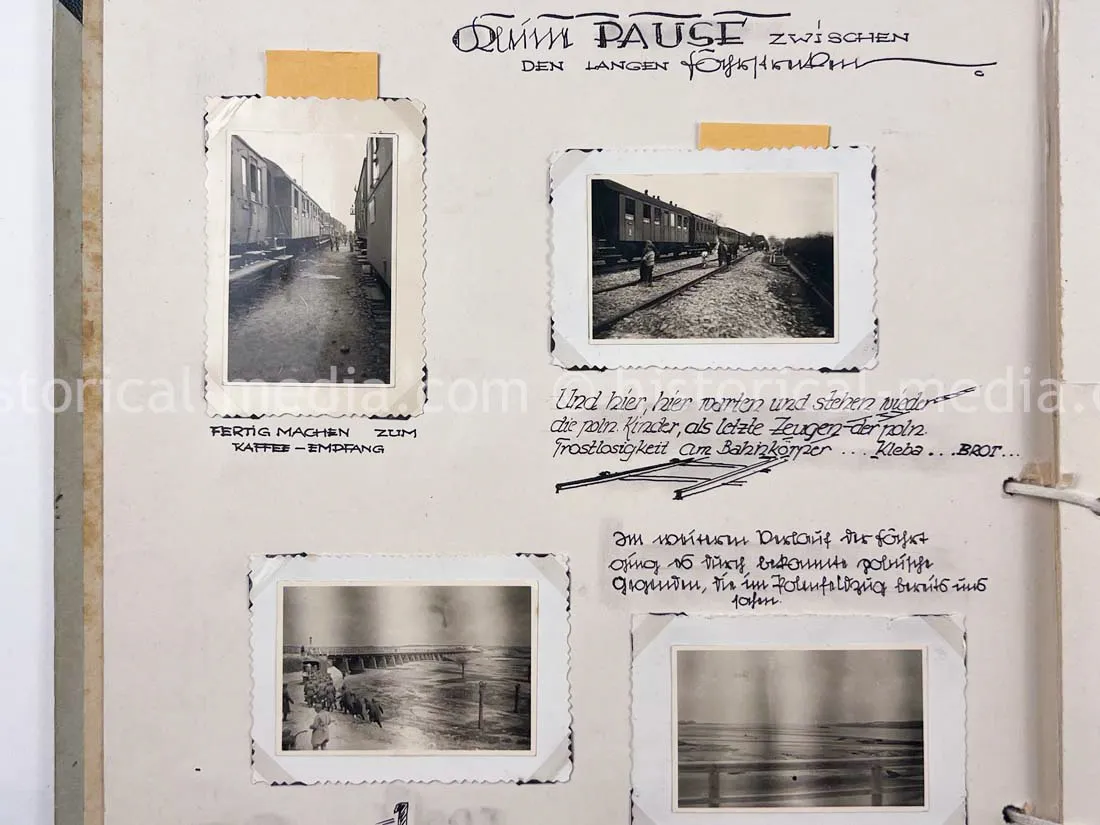 PAUSE ZWISCHEN
DEN LANGEN Fahrstrecken.
FERTIG MACHEN ZUM
KAFFEE-EMPFANG
Und hier, hier warten und stehen wieder
die poln. Kinder, als letzte Zeugen der poln.
Trostlosigkeit am Bahnkörper ... Kleba ... BROT...
Im weiteren Verlauf der Fahrt
ging es durch bekannte polnische
Gegenden, die im Polenfeldzug bereits uns
sahen.
storical-media.com © historical-media.com